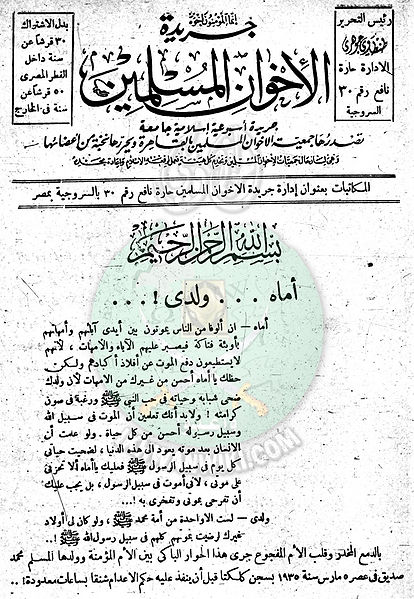 إنما المؤمنون إخوة
جريدة
الإخوان المسلمين
رئيس التحرير
طنطاوي جوهري
الادارة حارة
نافع رقم ٣٠
السروجية
بدل الاشتراك
٣٠ قرشا عن
سنة داخل
القطر المصرى
٥٠ قرشا عن
سنة فى الخارج
جريدة أسبوعية إسلامية جامعة
تصدرها جمعيت الاخوان المسلمين بالقاهرة وتحررها نخبة من أعضائها
المكاتبات بعنوان إدارة جريدة الاخوان المسلمين حارة نافع رقم ٣٠ بالسروجية بمصر
بسم الله الرحمن الرحيم
أماه ... ولدى ! ...
أماه — ان ألوفا من الناس يموتون بين أيدى آبائهم وأمهاتهم
بأوبئة فتاكة فيصبر عليهم الآباء والأمهات ، لأنهم
لا يستطيعون دفع الموت عن أفلاذ أكبادهم ولكن
حظك يا أماه أحسن من غيرك من الأمهات لأن ولدك
ضحى شبابه وحياته فى حب النبي ﷺ ورغبة فى صون
كرامته ! ولابد أنك تعلمين أن الموت فى سبيل الله
وسبيل رسوله أحسن من كل حياة . ولو علمت أن
الانسان بعد موته يعود الى هذه الدنيا ، لضحيت حياتى
كل يوم فى سبيل الرسول ﷺ فعليك يا أماه ألا تحزنى
على موتى ، لأنى أموت فى سبيل الرسول ، بل يجب عليك
أن تفرحى بموتى وتفخرى به ! ...
ولدى — لست الا واحدة من أمة محمد ﷺ ، ولو كان لى أولاد
غيرك لرضيت بموتهم كلهم فى سبيل رسول الله ﷺ ! ..
بالدمع المنحدر وقلب الأم المفجوع جرى هذا الحوار الباكى بين الأم المؤمنة وولدها المسلم محمد
صديق فى عصر ٥ مارس سنة ١٩٣٥ بسجن كلكتا قبل أن ينفذ عليه حكم الاعدام شنقا بساعات معدودة ! ..